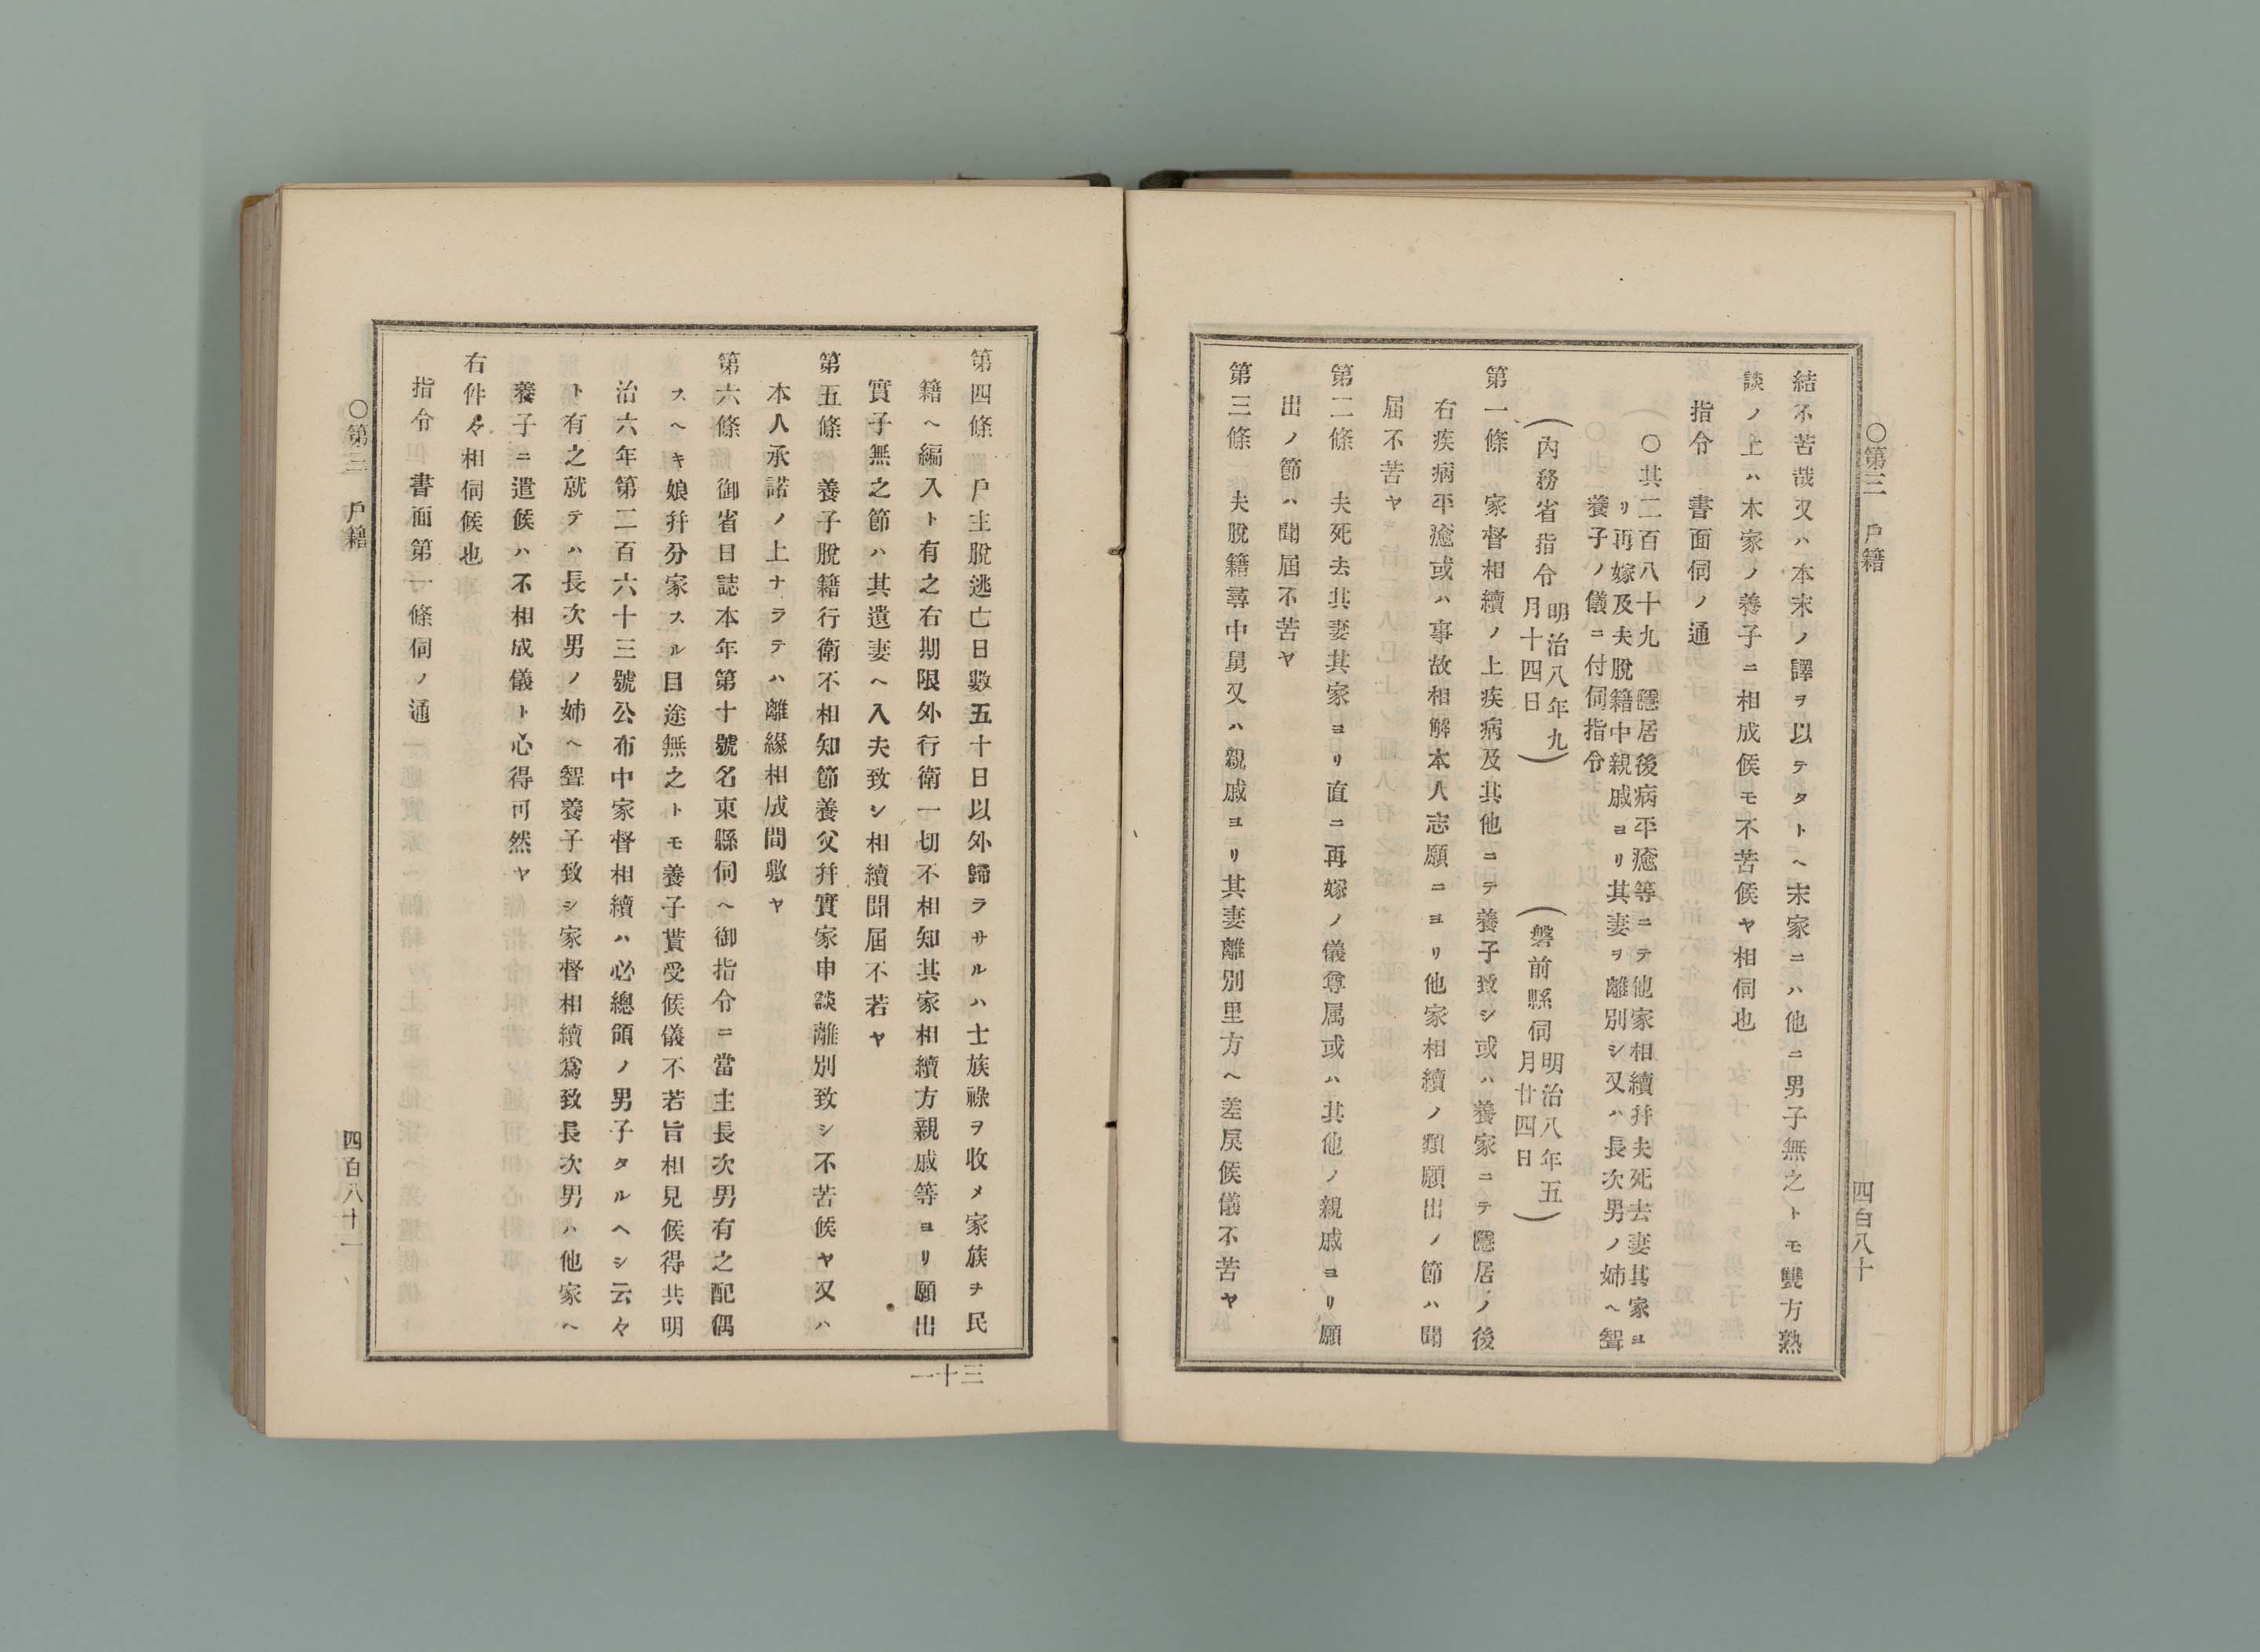 〇第三 戶籍
四百八十
結不苦哉又ハ本末ノ譯ヲ以テタトヘ末家ニハ他ニ男子無之トモ雙方熟
談ノ上ハ本家ノ養子ニ相成候モ不苦候ヤ相伺也
指令 書面伺ノ通
〇其二百八十九 隱居後病平癒等ニテ他家相續幷夫死去妻其家ヨ
リ再嫁及夫脫籍中親戚ヨリ其妻ヲ離別シ又ハ長次男ノ姉ヘ聟
養子ノ儀ニ付伺指令
(內務省指令 明治八年九月十四日) (磐前縣伺 明治八年五月廿四日)
第一條 家督相續ノ上疾病及其他ニテ養子致シ或ハ養家ニテ隱居ノ後
右疾病平癒或ハ事故相解本人志願ニヨリ他家相續ノ類願出ノ節ハ聞
屆不苦ヤ
第二條 夫死去其妻其家ヨリ直ニ再嫁ノ儀尊属或ハ其他ノ親戚ヨリ願
出ノ節ハ聞屆不苦ヤ
第三條 夫脫籍尋中舅又ハ親戚ヨリ其妻離別里方ヘ差戾候儀不苦ヤ
第四條 戶主脫逃亡日數五十日以外歸ラサルハ士族祿ヲ收メ家族ヲ民
籍ヘ編入ト有之右期限外行衛一切不相知其家相續方親戚等ヨリ願出
實子無之節ハ其遺妻ヘ入夫致シ相續聞屆不若ヤ
第五條 養子脫籍行衛不相知節養父幷實家申談離別致シ不苦候ヤ又ハ
本人承諾ノ上ナラテハ離緣相成間敷ヤ
第六條 御省日誌本年第十號名東縣伺ヘ御指令ニ當主長次男有之配偶
スヘキ娘幷分家スル目途無之トモ養子貰受候儀不若旨相見候得共明
治六年第二百六十三號公布中家督相續ハ必總領ノ男子タルヘシ云々
ト有之就テハ長次男ノ姉ヘ聟養子致シ家督相續爲致長次男ハ他家ヘ
養子ニ遣候ハ不相成儀ト心得可然ヤ
右件々相伺候也
指令 書面第一條伺ノ通
〇第三 戶籍
四百八十一
三十一